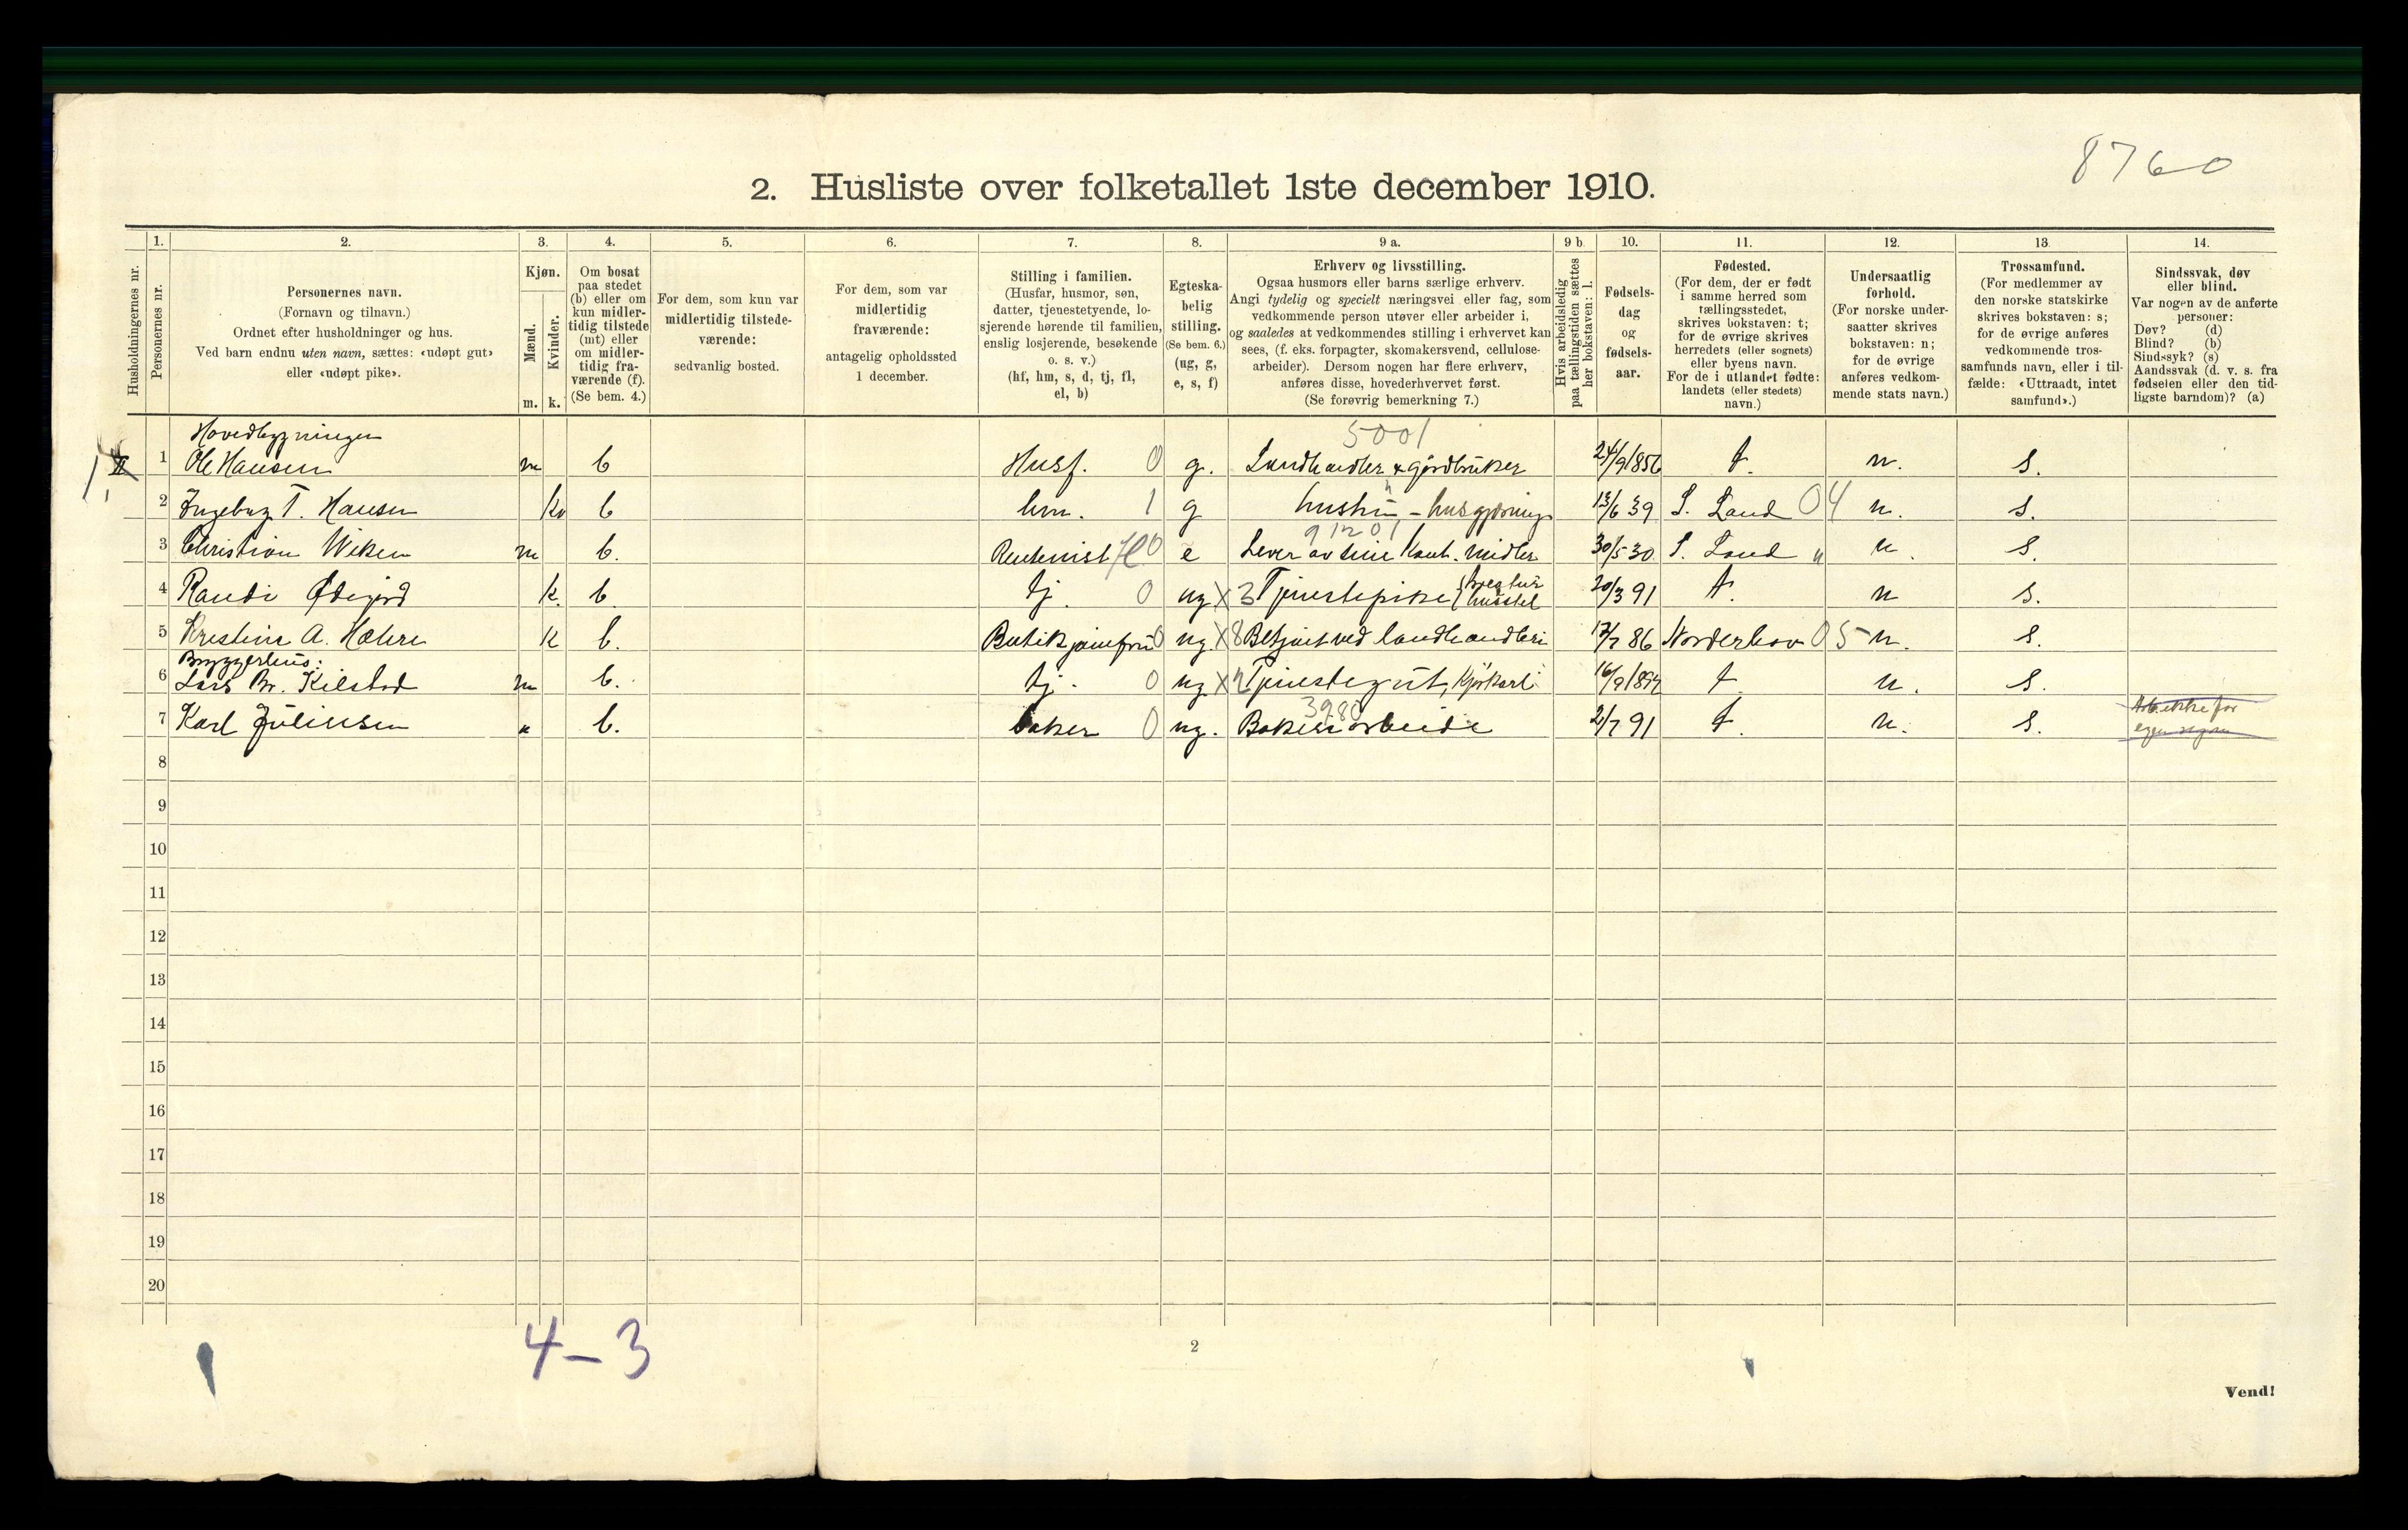 8760
2. Husliste over folketallet 1ste december 1910.
Husholdningernes nr.
1.
Personernes nr.
2.
Personernes navn.
(Fornavn og tilnavn.)
Ordnet efter husholdninger og hus.
Ved barn endnu uten navn, sættes: «udøpt gut»
eller «udøpt pike».
3.
Kjøn.
Mænd.
Kvinder.
m.
k.
4.
Om bosat
paa stedet
(b) eller om
kun midler-
tidig tilstede
(mt) eller
om midler-
tidig fra-
værende (f).
(Se bem. 4.)
5.
For dem, som kun var
midlertidig tilstede-
værende:
sedvanlig bosted.
6.
For dem, som var
midlertidig
fraværende:
antagelig opholdssted
1 december.
7.
Stilling i familien.
(Husfar, husmor, søn,
datter, tjenestetyende, lo-
sjerende hørende til familien,
enslig losjerende, besøkende
o. s. v.)
(hf, hm, s, d, tj, fl,
el, b)
8.
Egteska-
belig
stilling.
(Se bem. 6.)
(ug, g,
e, s, f)
9 a.
Erhverv og livsstilling.
Ogsaa husmors eller barns særlige erhverv.
Angi tydelig og specielt næringsvei eller fag, som
vedkommende person utøver eller arbeider i,
og saaledes at vedkommendes stilling i erhvervet kan
sees, (f. eks. forpagter, skomakersvend, cellulose-
arbeider). Dersom nogen har flere erhverv,
anføres disse, hovederhvervet først.
(Se forøvrig bemerkning 7.)
9 b.
Hvis arbeidsledig
paa tællingstiden sættes
her bokstaven: l.
10.
Fødsels-
dag
og
fødsels-
aar.
11.
Fødested.
(For dem, der er født
i samme herred som
tællingsstedet,
skrives bokstaven: t;
for de øvrige skrives
herredets (eller sognets)
eller byens navn.
For de i utlandet fødte:
landets (eller stedets)
navn.)
12.
Undersaatlig
forhold.
(For norske under-
saatter skrives
bokstaven: n;
for de øvrige
anføres vedkom-
mende stats navn.)
13.
Trossamfund.
(For medlemmer av
den norske statskirke
skrives bokstaven: s;
for de øvrige anføres
vedkommende tros-
samfunds navn, eller i til-
fælde: «Uttraadt, intet
samfund».)
14.
Sindssvak, døv
eller blind.
Var nogen av de anførte
personer:
Døv? (d)
Blind? (b)
Sindssyk? (s)
Aandssvak (d. v. s. fra
fødselen eller den tid-
ligste barndom)? (a)
Hovedbygningen 5001
1 Ole Hansen m b Husf. 0 g. Landhandler & gårdbruker 24/9 1856 t. n. s.
2 Ingeborg T. Hansen kv b hm. 1 g hustru - husgjerning 13/6 39 S. Land 04 n. s.
91201
3 Christian Wiken m b. Rentenist 0 e Lever av sine Kont. midler 30/5 30 S. Land " n. s.
4 Randi Ødegård k. b. tj. 0 ug X 3 Tjenestepike husstel 20/3 91 t. n s.
5 Kristine A. Hæhre k b. Butikjomfru 0 ug. X 8 Betjent ved landhandleri 17/7 86 Norderhov 05 n. s.
Bryggerhus:
6 Lars Br. Kilstad m b. tj. 0 ug X 2 Tjenestegut, Kjørkarl 16/9 1894 t n. s.
3980
7 Karl Juliussen " b. baker 0 ug. Bakeriarbeide 2/7 91 t. n. s. Arb. ikke for
egen regn
8
9
10
11
12
13
14
15
16
17
18
19
20
4 - 3
2
Vend!